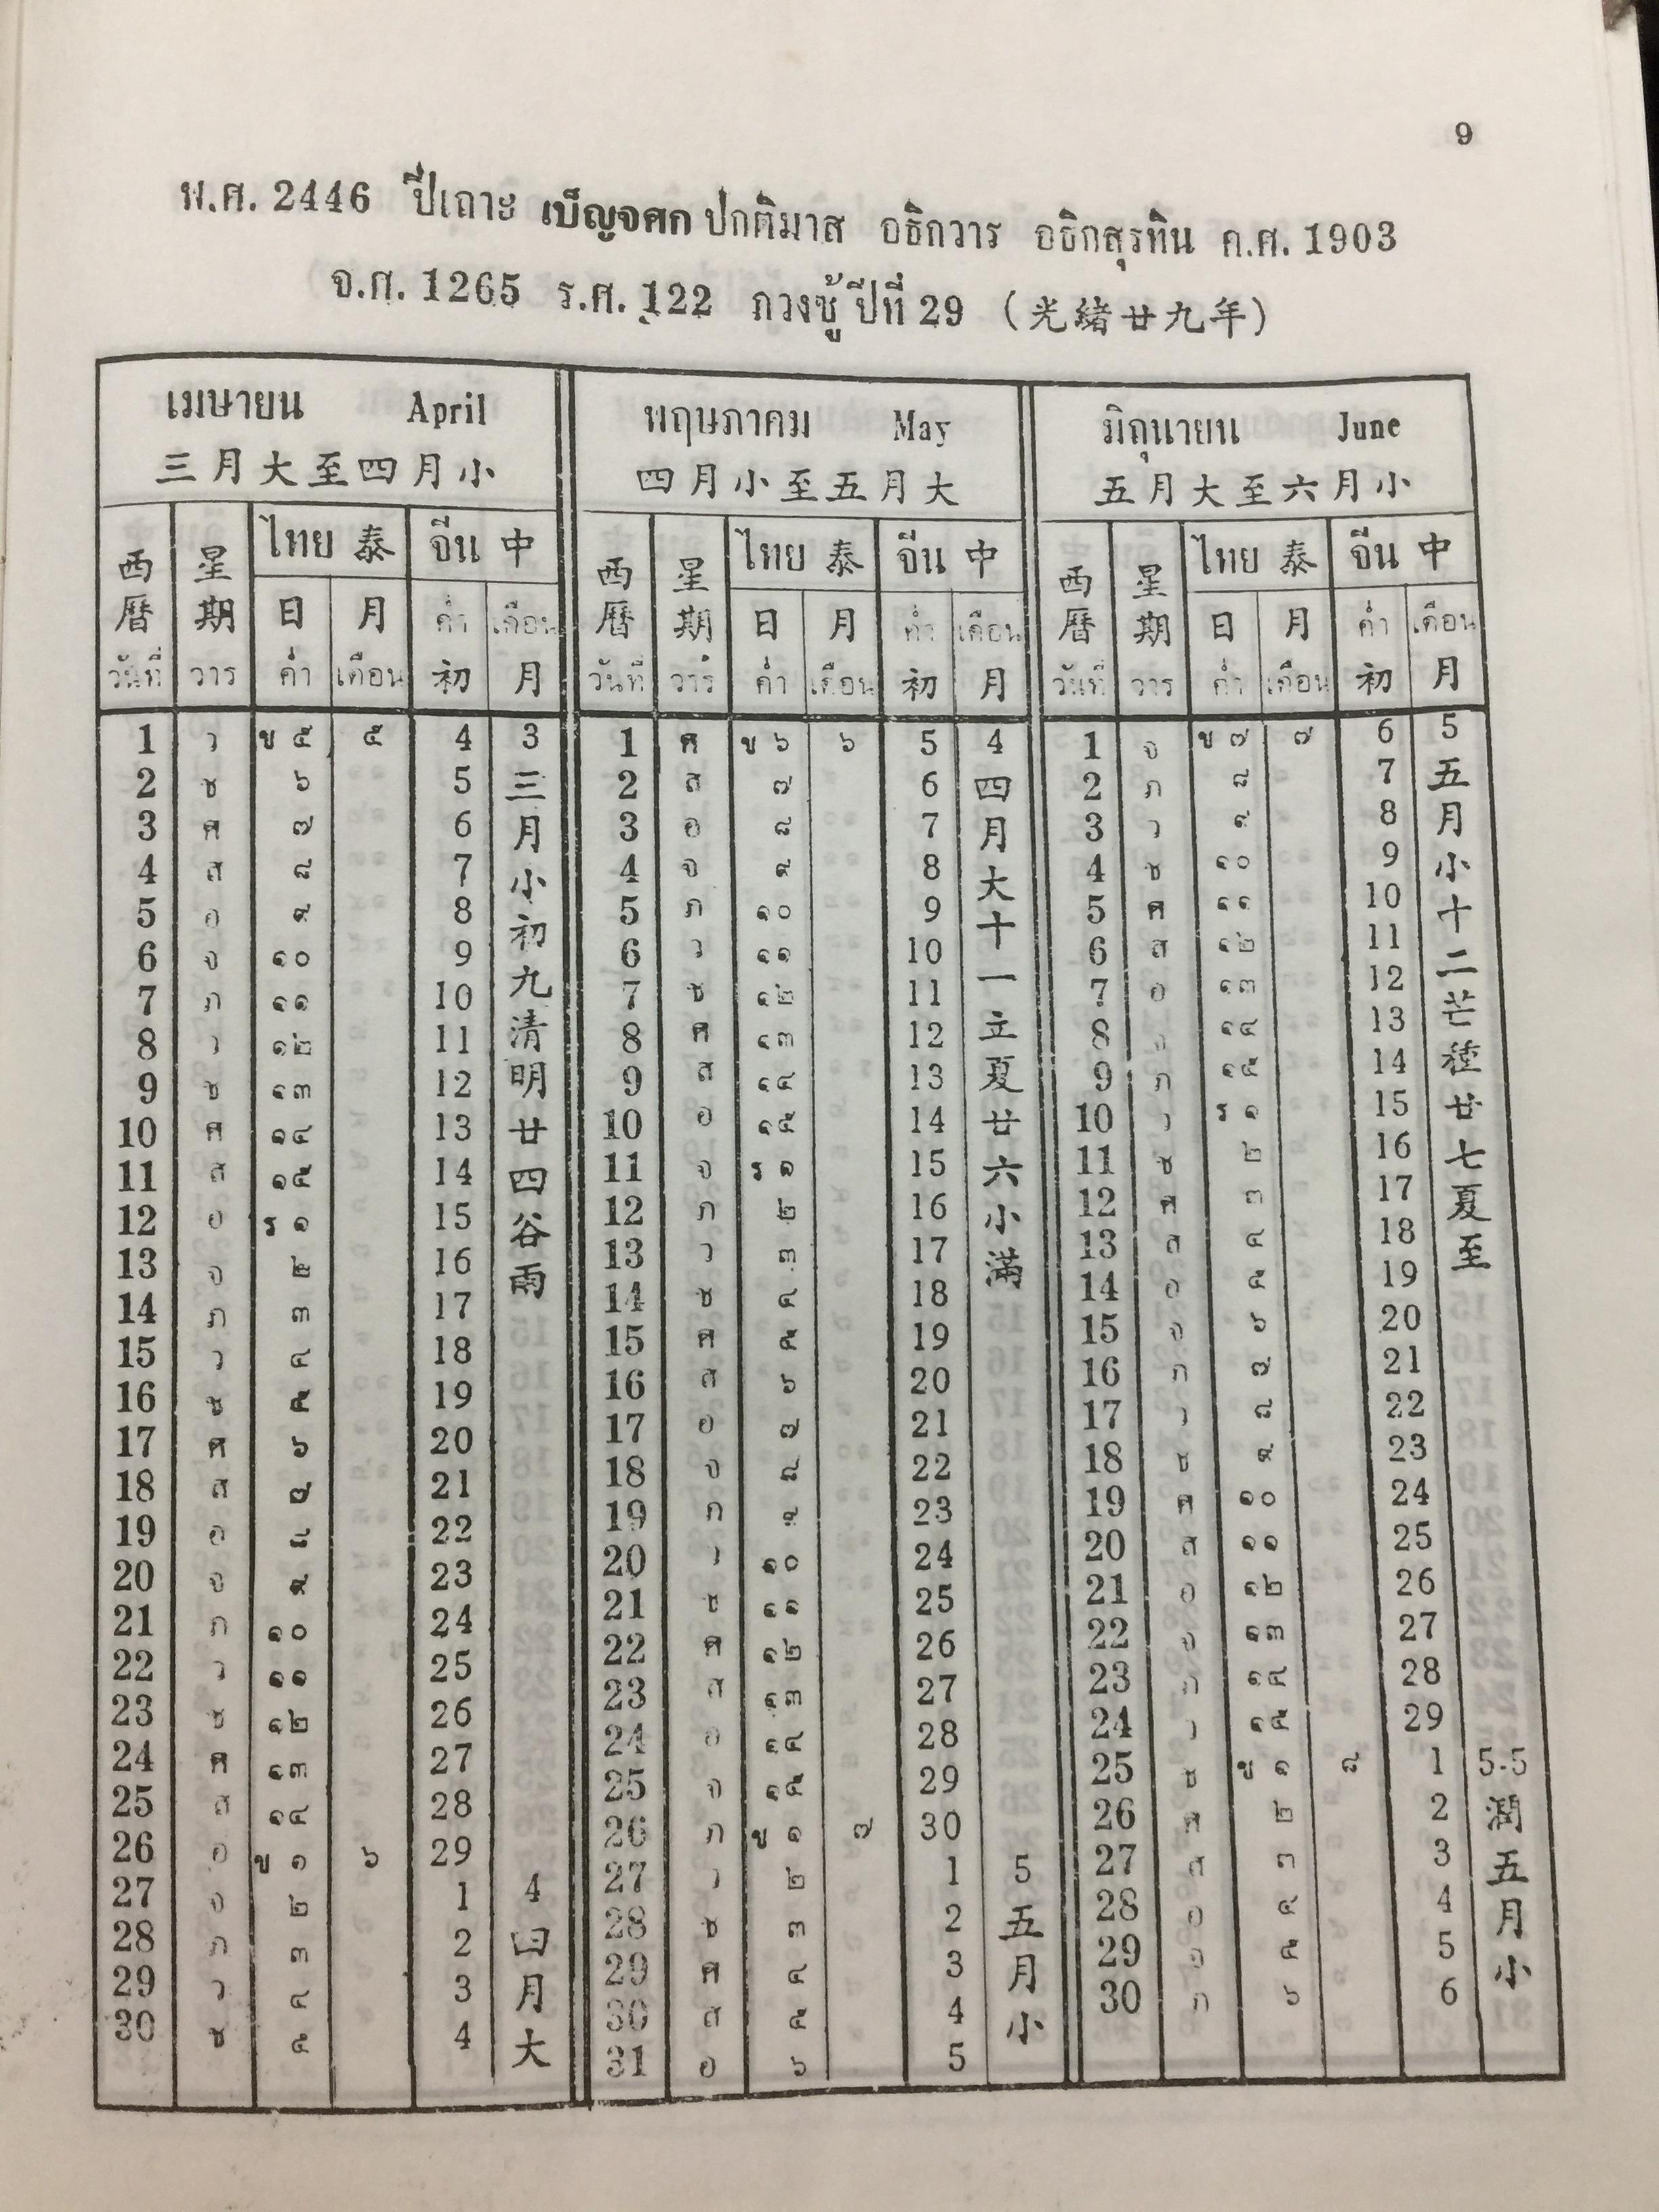 9
พ.ศ. 2446 ปีเถาะ เบ็ญจศก ปกติมาส อธิกวาร อธิกสุรทิน ค.ศ. 1903
จ.ศ. 1265 ร.ศ. 122 กวงซู้ ปีที่ 29 (光緒廿九年)
เมษายน April
三月大至四月小
西曆 วันที่ 星期 วาร ไทย 泰 日 ค่ำ 月 เดือน จีน 中 ค่ำ 初 เดือน 月
1 ว ข ๕ ๕ 4 3
2 ช ๖ 5
3 ศ ๗ 6
4 ส ๘ 7
5 อ ๙ 8
6 จ ๑๐ 9
7 ภ ๑๑ 10
8 ว ๑๒ 11
9 ช ๑๓ 12
10 ศ ๑๔ 13
11 ส ๑๕ 14
12 อ ร ๑ 15
13 จ ๒ 16
14 ภ ๓ 17
15 ว ๔ 18
16 ช ๕ 19
17 ศ ๖ 20
18 ส ๗ 21
19 อ ๘ 22
20 จ ๙ 23
21 ภ ๑๐ 24
22 ว ๑๑ 25
23 ช ๑๒ 26
24 ศ ๑๓ 27
25 ส ๑๔ 28
26 อ ข ๑ ๖ 29
27 จ ๒ 1 4
28 ภ ๓ 2
29 ว ๔ 3
30 ช ๕ 4
三月小初九清明廿四谷雨
四月大
พฤษภาคม May
四月小至五月大
西曆 วันที่ 星期 วาร ไทย 泰 日 ค่ำ 月 เดือน จีน 中 ค่ำ 初 เดือน 月
1 ศ ข ๖ ๖ 5 4
2 ส ๗ 6
3 อ ๘ 7
4 จ ๙ 8
5 ภ ๑๐ 9
6 ว ๑๑ 10
7 ช ๑๒ 11
8 ศ ๑๓ 12
9 ส ๑๔ 13
10 อ ๑๕ 14
11 จ ร ๑ 15
12 ภ ๒ 16
13 ว ๓ 17
14 ช ๔ 18
15 ศ ๕ 19
16 ส ๖ 20
17 อ ๗ 21
18 จ ๘ 22
19 ภ ๙ 23
20 ว ๑๐ 24
21 ช ๑๑ 25
22 ศ ๑๒ 26
23 ส ๑๓ 27
24 อ ๑๔ 28
25 จ ๑๕ 29
26 ภ ข ๑ ๗ 30
27 ว ๒ 1 5
28 ช ๓ 2
29 ศ ๔ 3
30 ส ๕ 4
31 อ ๖ 5
四月大十一立夏廿六小滿
五月小
มิถุนายน June
五月大至六月小
西曆 วันที่ 星期 วาร ไทย 泰 日 ค่ำ 月 เดือน จีน 中 ค่ำ 初 เดือน 月
1 จ ข ๗ ๗ 6 5
2 ภ ๘ 7
3 ว ๙ 8
4 ช ๑๐ 9
5 ศ ๑๑ 10
6 ส ๑๒ 11
7 อ ๑๓ 12
8 จ ๑๔ 13
9 ภ ๑๕ 14
10 ว ร ๑ 15
11 ช ๒ 16
12 ศ ๓ 17
13 ส ๔ 18
14 อ ๕ 19
15 จ ๖ 20
16 ภ ๗ 21
17 ว ๘ 22
18 ช ๙ 23
19 ศ ๑๐ 24
20 ส ๑๑ 25
21 อ ๑๒ 26
22 จ ๑๓ 27
23 ภ ๑๔ 28
24 ว ๑๕ 29
25 ช ข ๑ ๘ 1 5-5
26 ศ ๒ 2
27 ส ๓ 3
28 อ ๔ 4
29 จ ๕ 5
30 ภ ๖ 6
五月小十二芒種廿七夏至
潤五月小